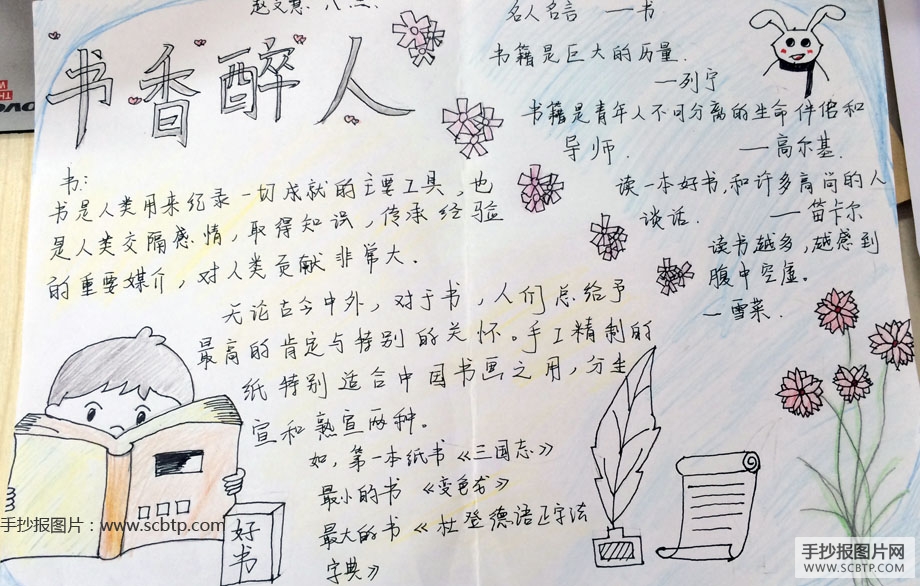 赵文慧 八.三.
书香醉人
书:
书是人类用来纪录一切成就的主要工具,也
是人类交隔感情,取得知识,传承经验
的重要媒介,对人类贡献非常大.
无论古今中外,对于书,人们总给予
最高的肯定与特别的关怀。手工精制的
纸特别适合中国书画之用,分生
宣和熟宣两种。
如,第一本纸书《三国志》
最小的书《变色龙》
最大的书《杜登德语正字法
字典》
好书
名人名言 一书
书籍是巨大的历量.
—列宁
书籍是青年人不可分离的生命伴侣和
导师.
—高尔基.
读一本好书,和许多高尚的人
谈话.
—笛卡尔
读书越多,越感到
腹中空虚。
—雪莱.
手抄报图片:www.scbtp.com
手抄报图片网
WWW.SCBTP.COM